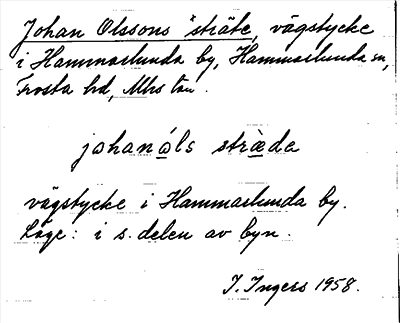 Johan Olssons "sträte, vägstycke
i Hammarlunda by, Hammarlunda sn,
Frosta hd, Mhs län.
johanóls strὰda
vägstycke i Hammarlunda by.
Läge: i s. delen av byn.
I. Ingers 1958.